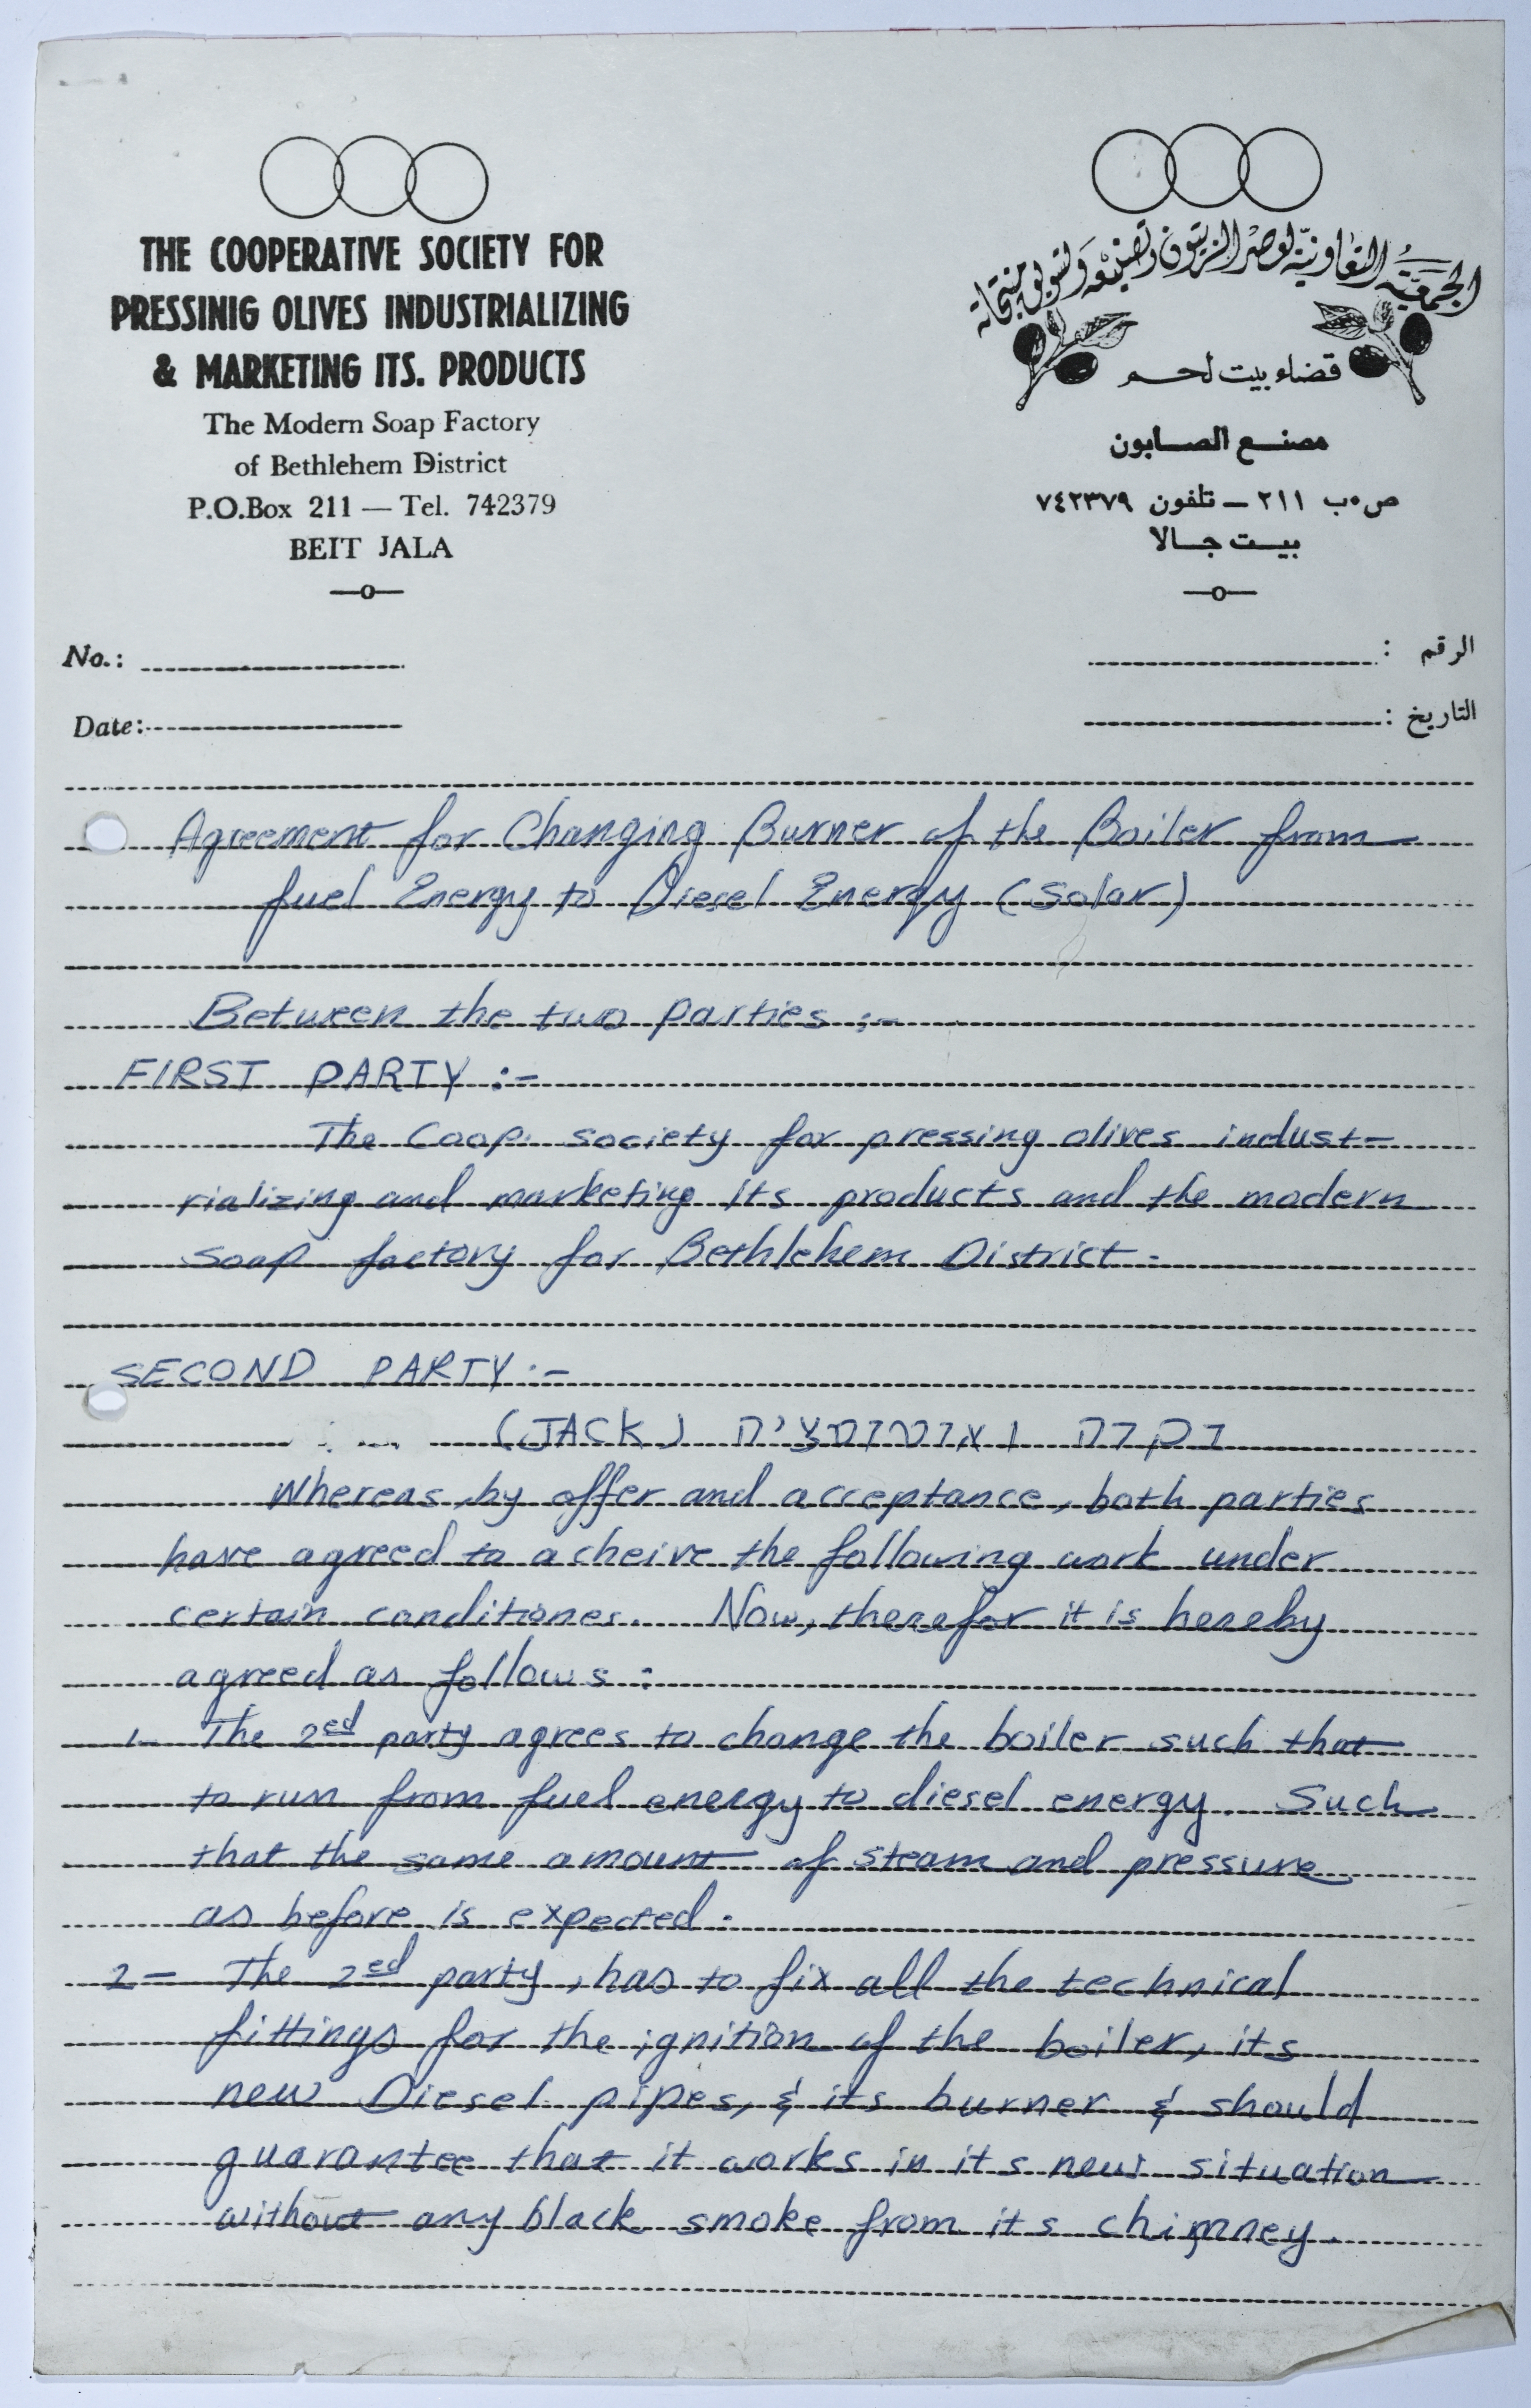 THE COOPERATIVE SOCIETY FOR
PRESSINIG OLIVES INDUSTRIALIZING
& MARKETING ITS. PRODUCTS
The Modern Soap Factory
of Bethlehem District
P.O.Box 211 — Tel. 742379
BEIT JALA
الجمعية التعاونية لعصر الزيتون وتصنيعه وتسويق منتجاته
قضاء بيت لحم
مصنع الصابون
ص٠ب ٢١١ — تلفون ٧٤٢٣٧٩
بيت جالا
No.:
الرقم :
Date:
التاريخ :
Agreement for Changing Burner of the Boiler from
fuel Energy to Diesel Energy (Solar)
Between the two parties :-
FIRST PARTY :-
The Coop. society for pressing olives indust-
rializing and marketing its products and the modern
soap factory for Bethlehem District.
SECOND PARTY :-
בקרה ואוטומציה (JACK)
Whereas, by offer and acceptance, both parties
have agreed to acheive the following work under
certain conditiones. Now, therefor it is hereby
agreed as follows :
1- The 2ed party agrees to change the boiler such that
to run from fuel energy to diesel energy. Such
that the same amount of steam and pressure
as before is expected.
2- The 2ed party, has to fix all the technical
fittings for the ignition of the boiler, its
new Diesel pipes, & its burner & should
guarantee that it works in its new situation
without any black smoke from its chimney.